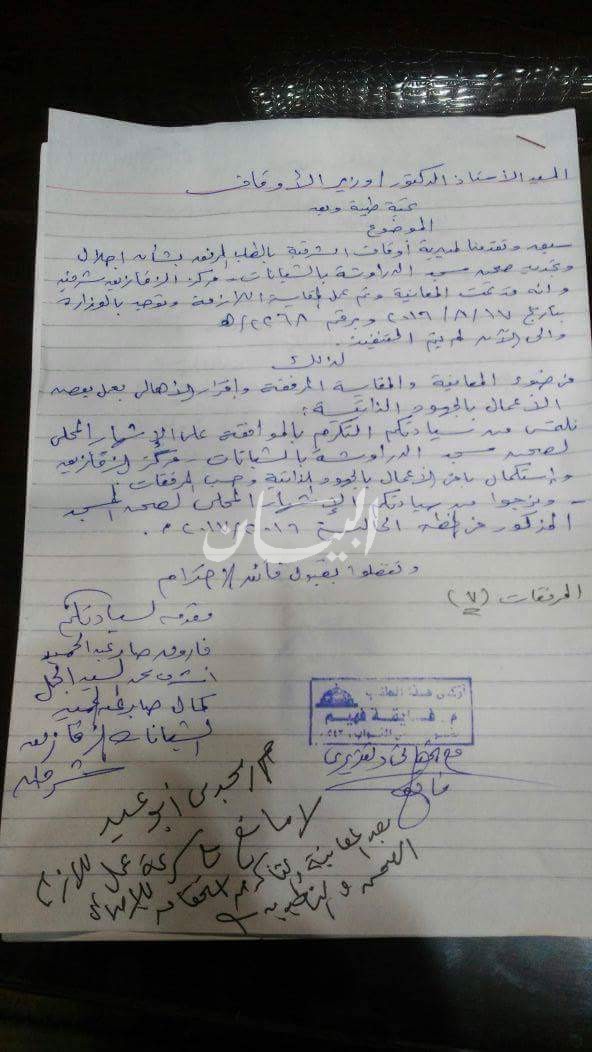 السيد الأستاذ الدكتور / وزير الأوقاف
تحية طيبة وبعد
الموضوع
سبق وتقدمنا لمديرية أوقاف الشرقية بالطلب المرفق بشأن إحلال
وتجديد صحن مسجد الدراوشة بالشبانات - مركز الزقازيق شرقية
وأنه قد تمت المعاينة وتم عمل المقايسة اللازمة وتوجد بالوزارة
بتاريخ ١٧ / ٨ / ٢٠١٦ وبرقم ٢٢٦٨
والى الآن لم يتم التنفيذ.
لذلك
فى ضوء المعاينة والمقايسة المرفقة وإقرار الأهالى بعمل بعض
الأعمال بالجهود الذاتية:
نلتمس من سيادتكم التكرم بالموافقة على الإشهار المحلى
لصحن مسجد الدراوشة بالشبانات - مركز الزقازيق
وإستكمال باقى الأعمال بالجهود الذاتية وحسب المرفقات
- ونرجوا من سيادتكم الإشهار المحلى لصحن المسجد
المذكور فى الخطة الحالية ٢٠١٦ / ٢٠١٧ م.
البيان
وتفضلوا بقبول فائق الإحترام
المرفقات (٧)
مقدمه لسيادتكم
فاروق صابر عبد الحميد
أشرف محمد السيد
كمال صابر عبد الحميد
الشبانات / زقازيق
شرقية
م. فايقة فهيم
مع خالص تقديرى
فايقة
م / مجدى أبو عيد
لا مانع
بعد المعاينة والتأكد